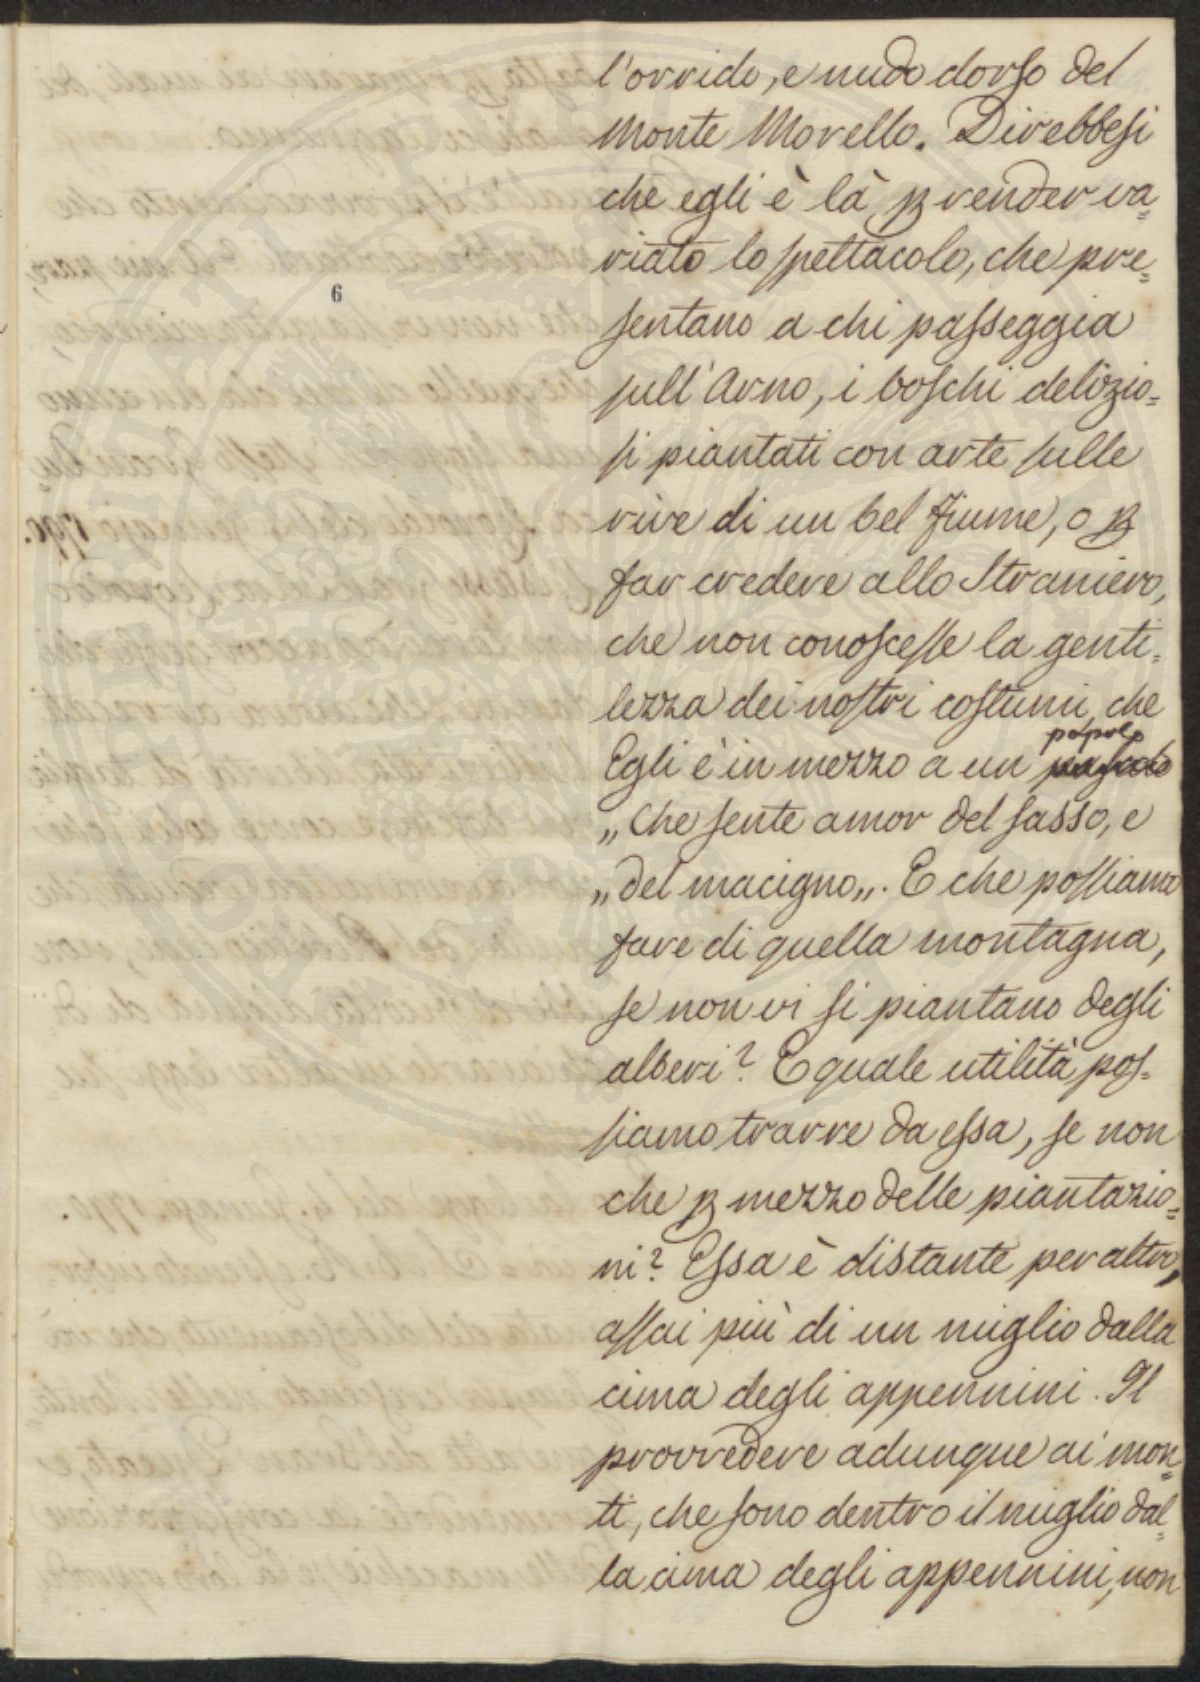 l'orrido, e nudo dorso del
Monte Morello. Direbbesi
che egli è là p render va=
riato lo spettacolo, che pre=
sentano a chi passeggia
sull'Arno, i boschi delizio=
si piantati con arte sulle
rive di un bel fiume, o p
far credere allo Straniero,
che non conoscesse la genti=
lezza dei nostri costumi, che
popolo
Egli è in mezzo a un
„Che sente amor del sasso, e
„del macigno„. E che possiamo
fare di quella montagna,
se non vi si piantano degli
alberi? E quale utilità pos=
siamo trarre da essa, se non
che p mezzo delle piantazio=
ni? Essa è distante per altro,
assai più di un miglio dalla
cima degli appennini. Il
provvedere adunque ai mon=
ti, che sono dentro il miglio dal=
la cima degli appennini, non
6